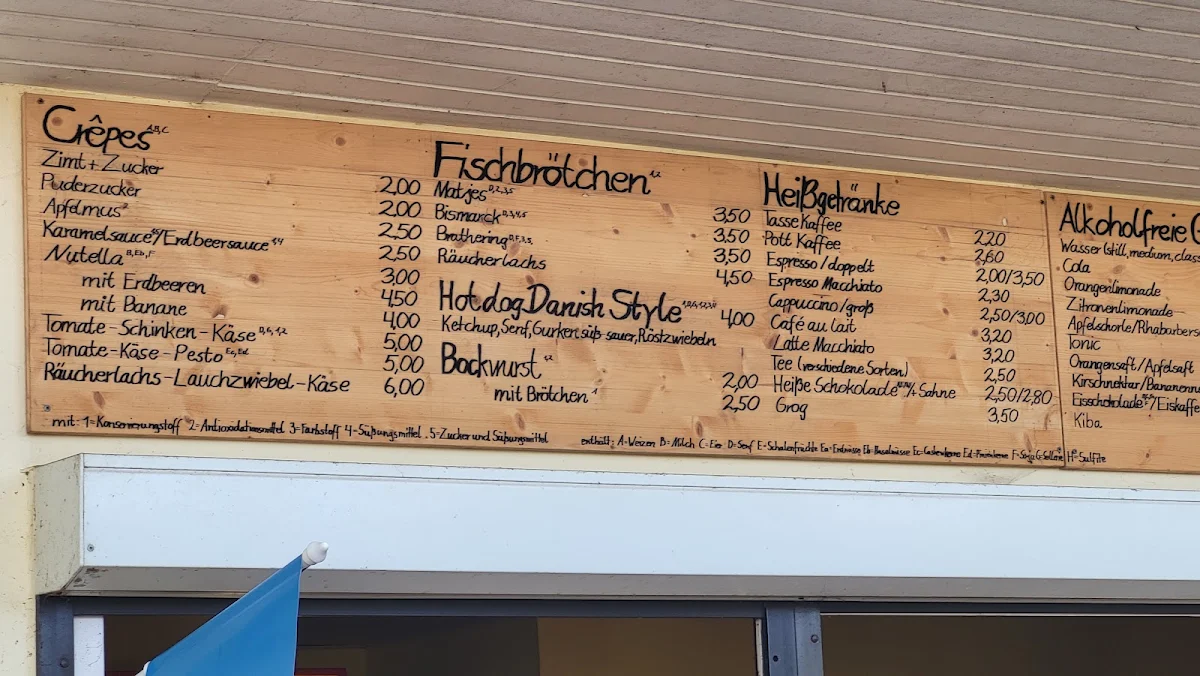 Crêpes A,B,C
Zimt+Zucker 2,00
Puderzucker 2,00
Apfelmus 2,50
Karamelsauce/Erdbeersauce 2,50
Nutella 3,00
mit Erdbeeren 4,50
mit Banane 4,00
Tomate-Schinken-Käse 5,00
Tomate-Käse-Pesto 5,00
Räucherlachs-Lauchzwiebel-Käse 6,00
Fischbrötchen 1,2
Matjes D,2,3,5 3,50
Bismarck D,3,4,5 3,50
Brathering 3,50
Räucherlachs 4,50
Hot dog Danish Style 4,00
Ketchup, Senf, Gurken süß-sauer, Röstzwiebeln
Bockwurst 1,2 2,00
mit Brötchen 1 2,50
Heißgetränke
Tasse Kaffee 2,20
Pott Kaffee 2,60
Espresso/doppelt 2,00/3,50
Espresso Macchiato 2,30
Cappuccino/groß 2,50/3,00
Café au lait 3,20
Latte Macchiato 3,20
Tee (verschiedene Sorten) 2,50
Heiße Schokolade /+ Sahne 2,50/2,80
Grog 3,50
Alkoholfreie G
Wasser (still, medium, class
Cola
Orangenlimonade
Zitronenlimonade
Apfelschorle/Rhabarbers
Tonic
Orangensaft/Apfelsaft
Kirschnektar/Bananenn
Eisschokolade/Eiskaffe
Kiba
mit: 1=Konservierungsstoff 2=Antioxidationsmittel 3=Farbstoff 4-Süßungsmittel, 5-Zucker und Süßungsmittel
enthält: A-Weizen B=Milch C-Eier D-Senf E-Schalenfrüchte Ea-Erdnüsse Eb-Haselnüsse Ec-Cashewkerne Ed-Pinienkerne F-Soja G-Sellerie H=Sulfite